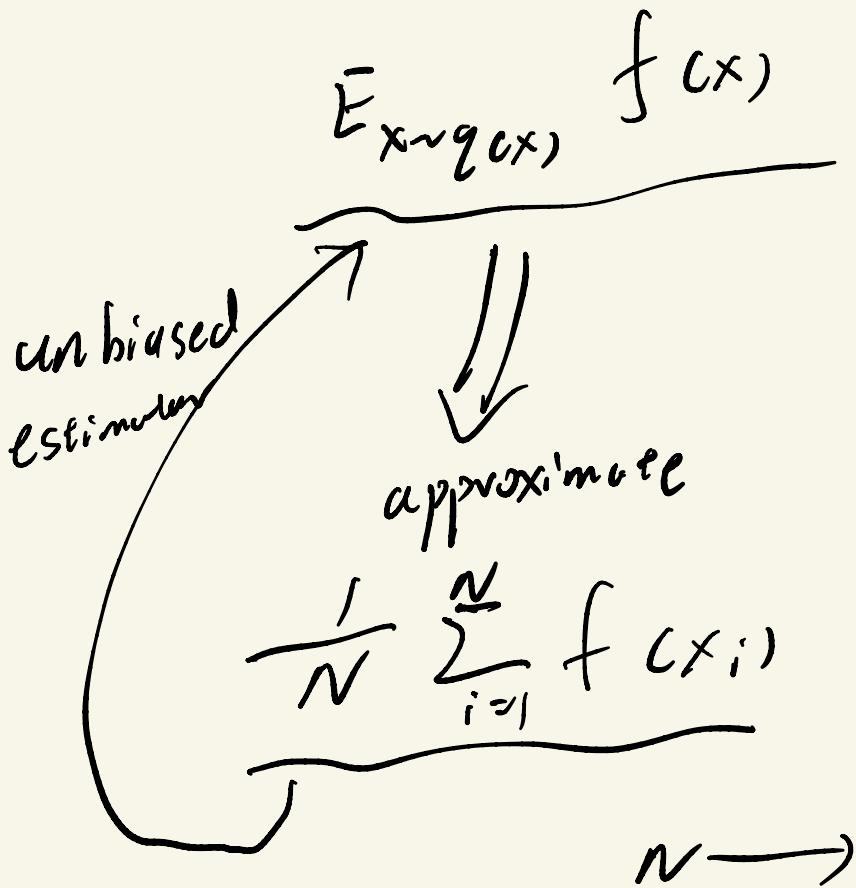 E_{x~q(x)} f(x)
unbiased
estimator
approximate
\frac{1}{N} \sum_{i=1}^{N} f(x_i)
N →